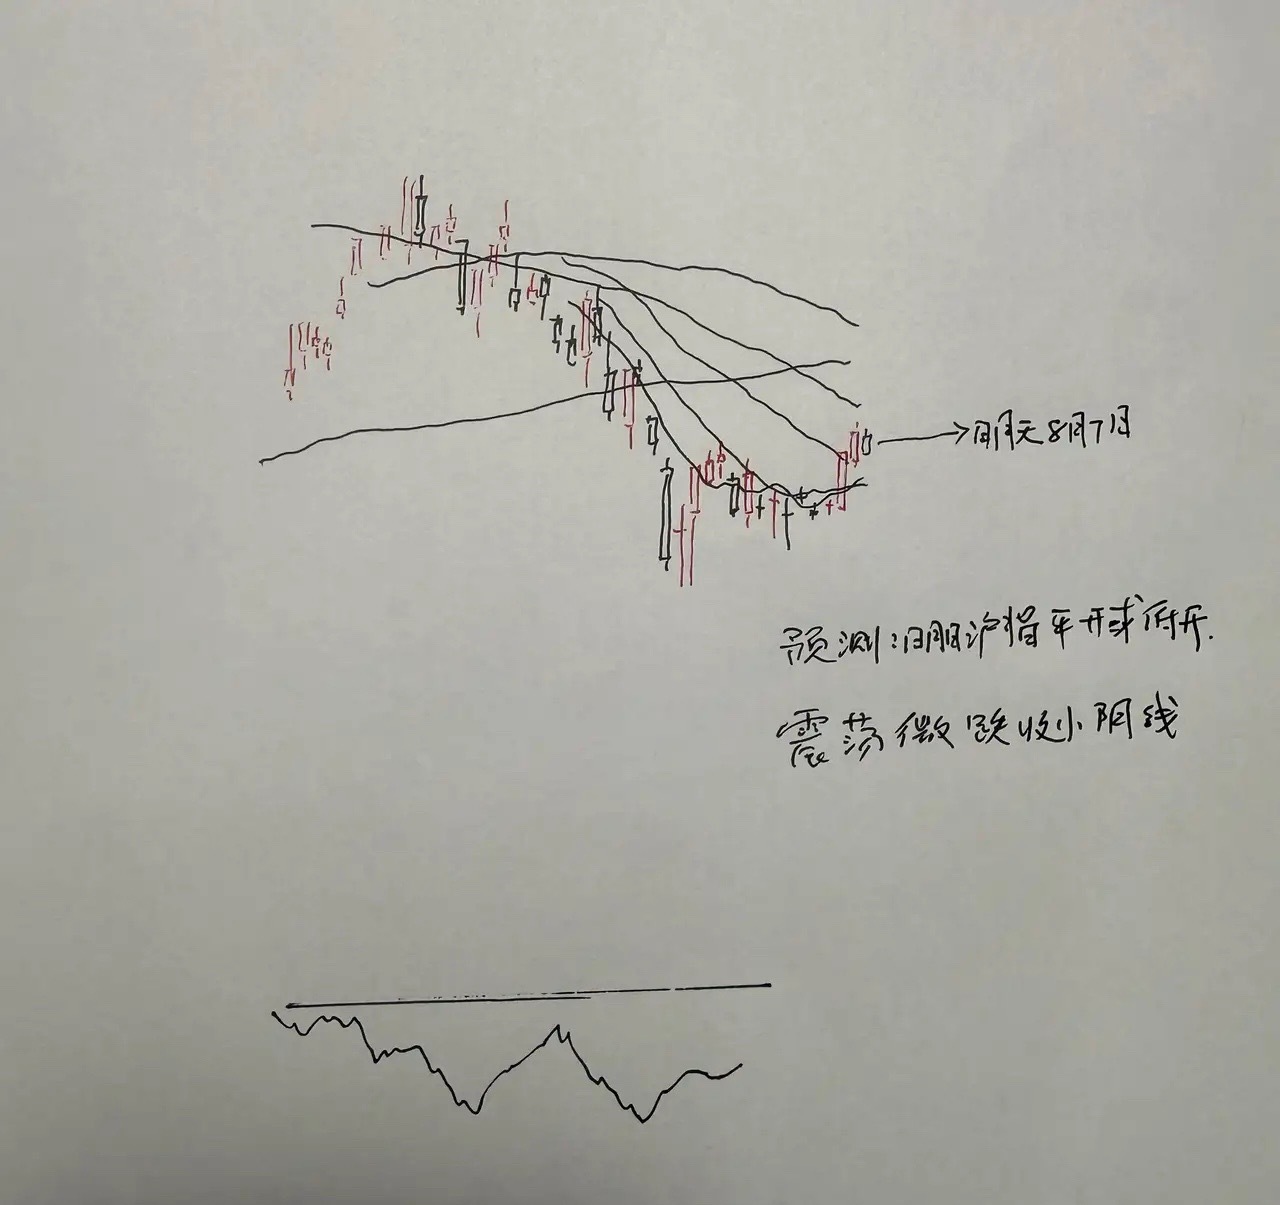 明天8月7日
预测:明日沪指平开或低开.
震荡微跌收小阴线